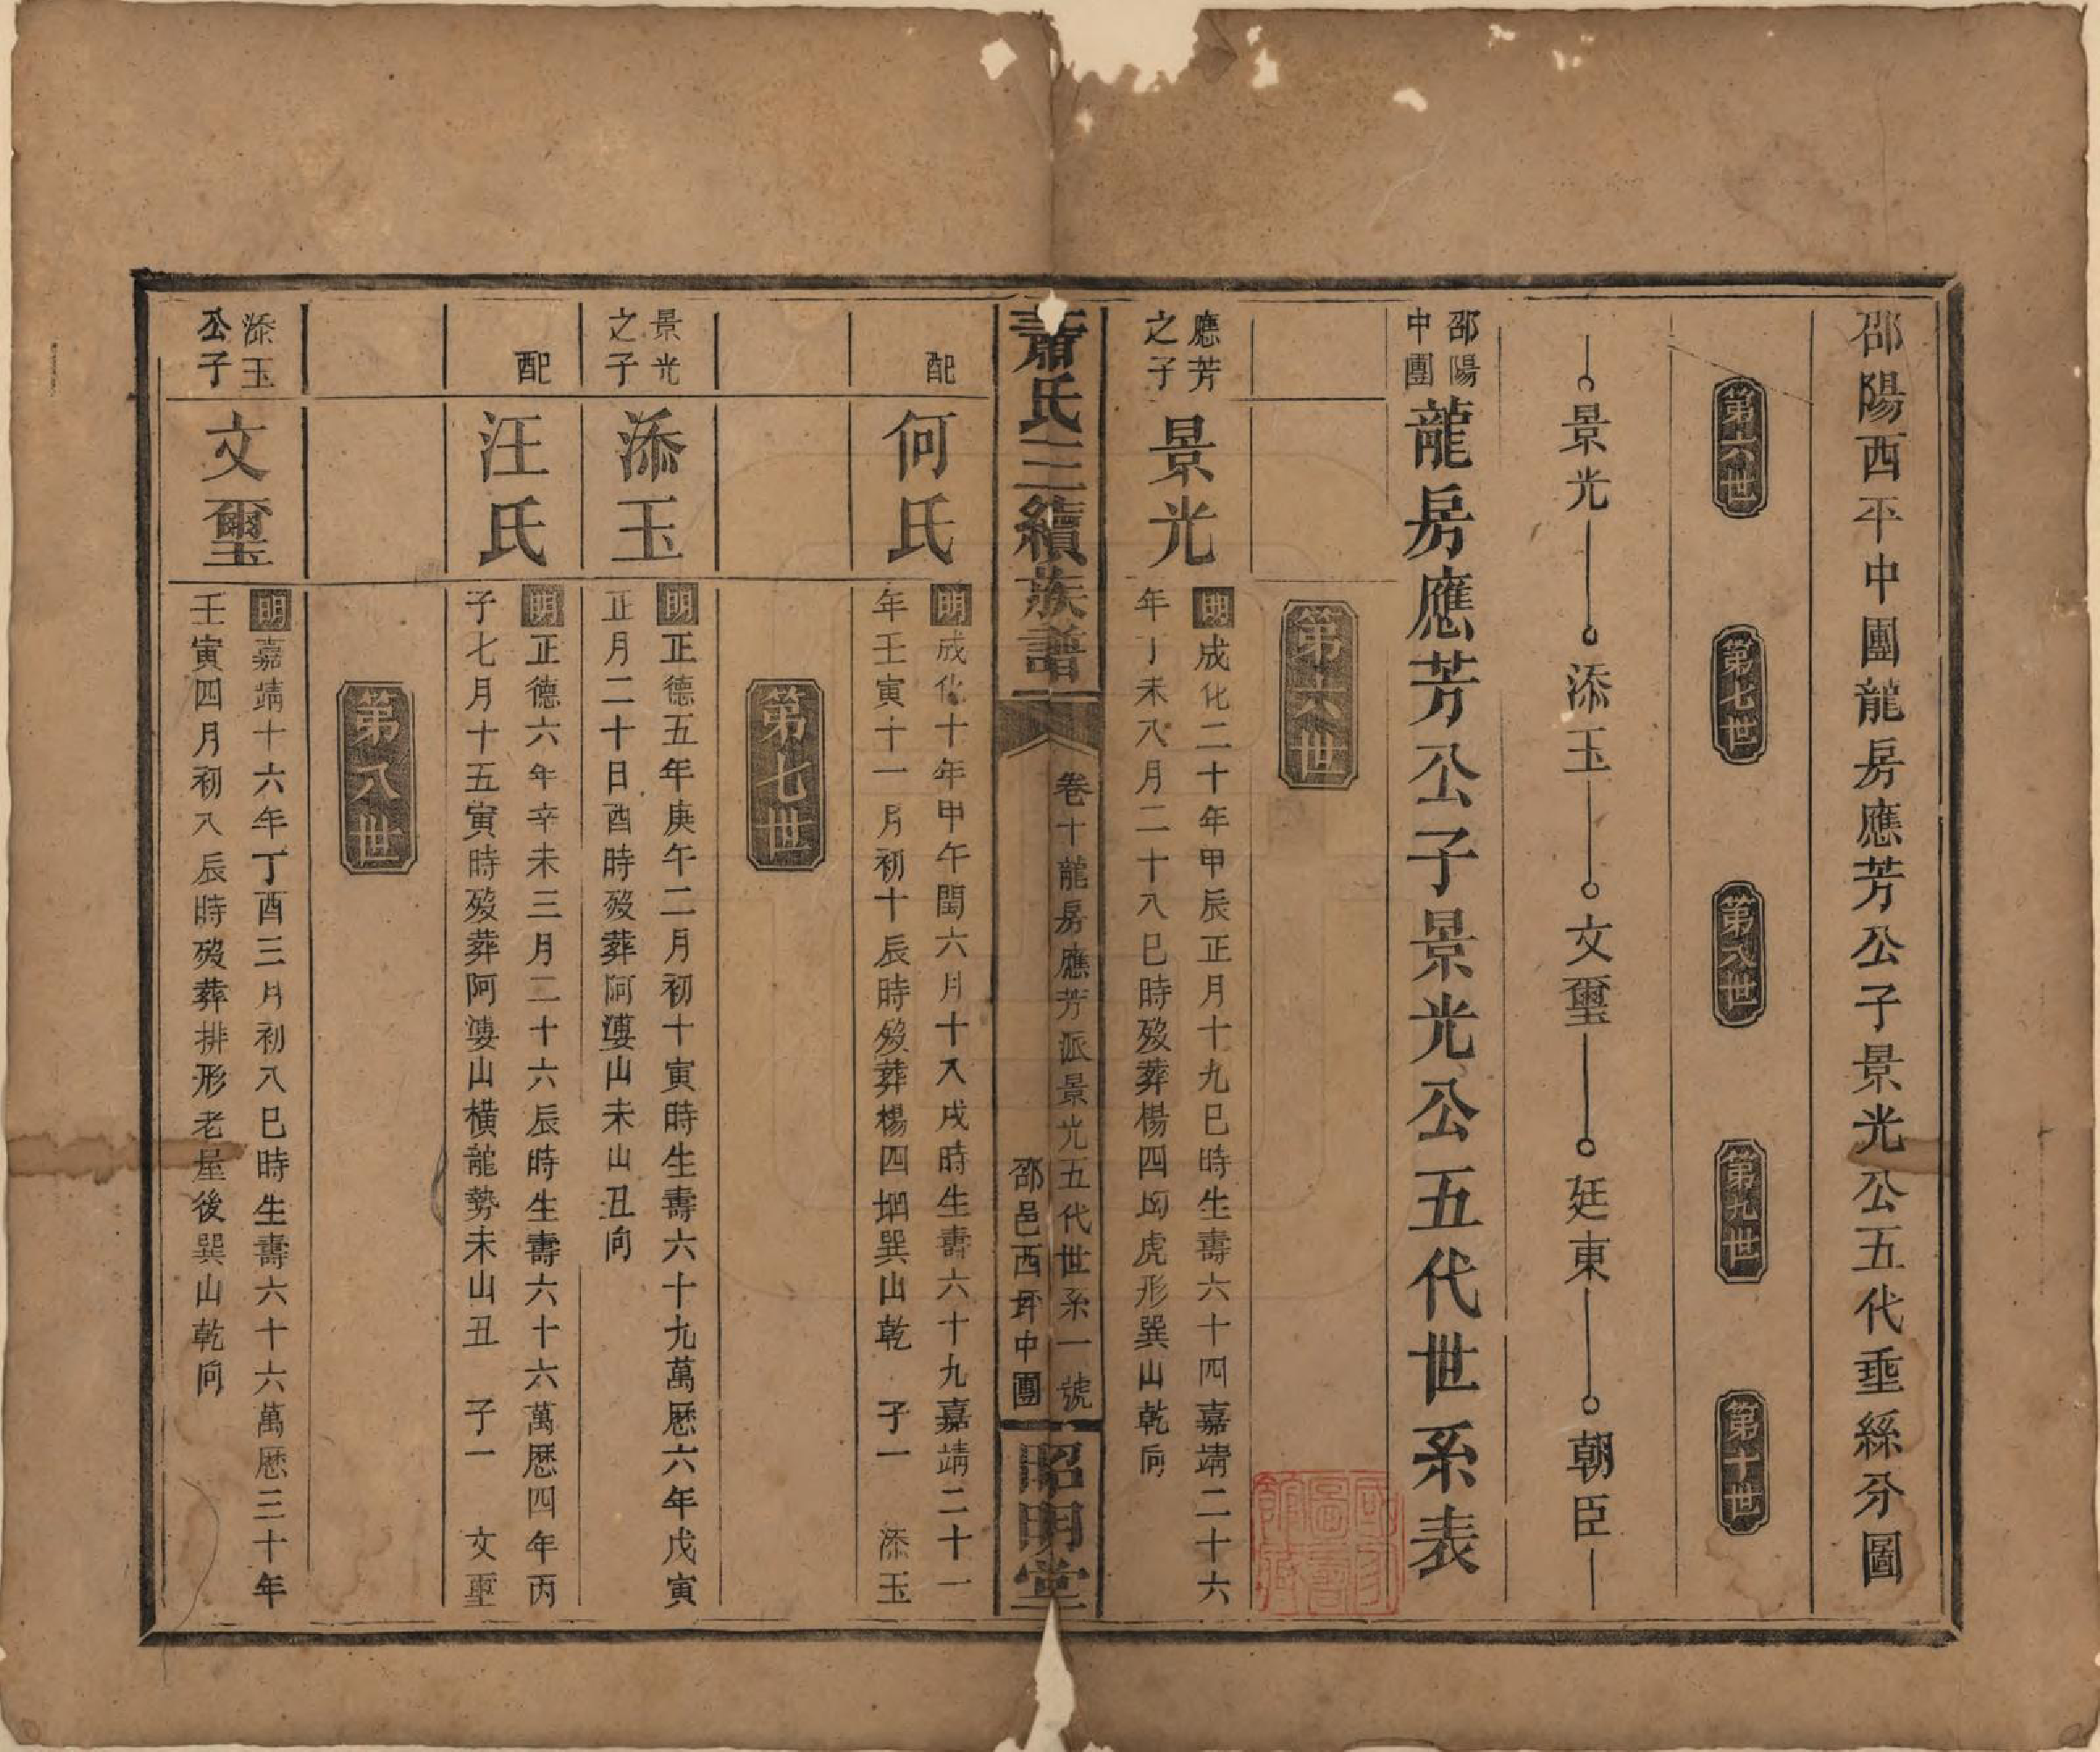 邵陽西平中團龍房應芳公子景光公五代垂絲分圖
第六世
第七世
第八世
第九世
第十世
景光
添玉
文璽
廷東
朝臣
邵陽
中團
龍房應芳公子景光公五代世系表
第六世
應芳
之子
景光
明成化二十年甲辰正月十九巳時生壽六十四嘉靖二十六
年丁未八月二十八巳時殁葬楊四坳虎形巽山乾向
蕭氏三續族譜
卷十龍房應芳派景光五代世系一號
邵邑西坪中團
昭明堂
配
何氏
明成化十年甲午閏六月十八戌時生壽六十九嘉靖二十一
年壬寅十一月初十辰時殁葬楊四坳巽山乾 子一 添玉
第七世
景光
之子
添玉
明正德五年庚午二月初十寅時生壽六十九萬厯六年戊寅
正月二十日酉時殁葬阿婆山未山丑向
配
汪氏
明正德六年辛未三月二十六辰時生壽六十六萬厯四年丙
子七月十五寅時殁葬阿婆山橫龍勢未山丑 子一 文璽
第八世
添玉
公子
文璽
明嘉靖十六年丁酉三月初八巳時生壽六十六萬厯三十年
壬寅四月初八辰時殁葬排形老屋後巽山乾向
國家圖書館藏